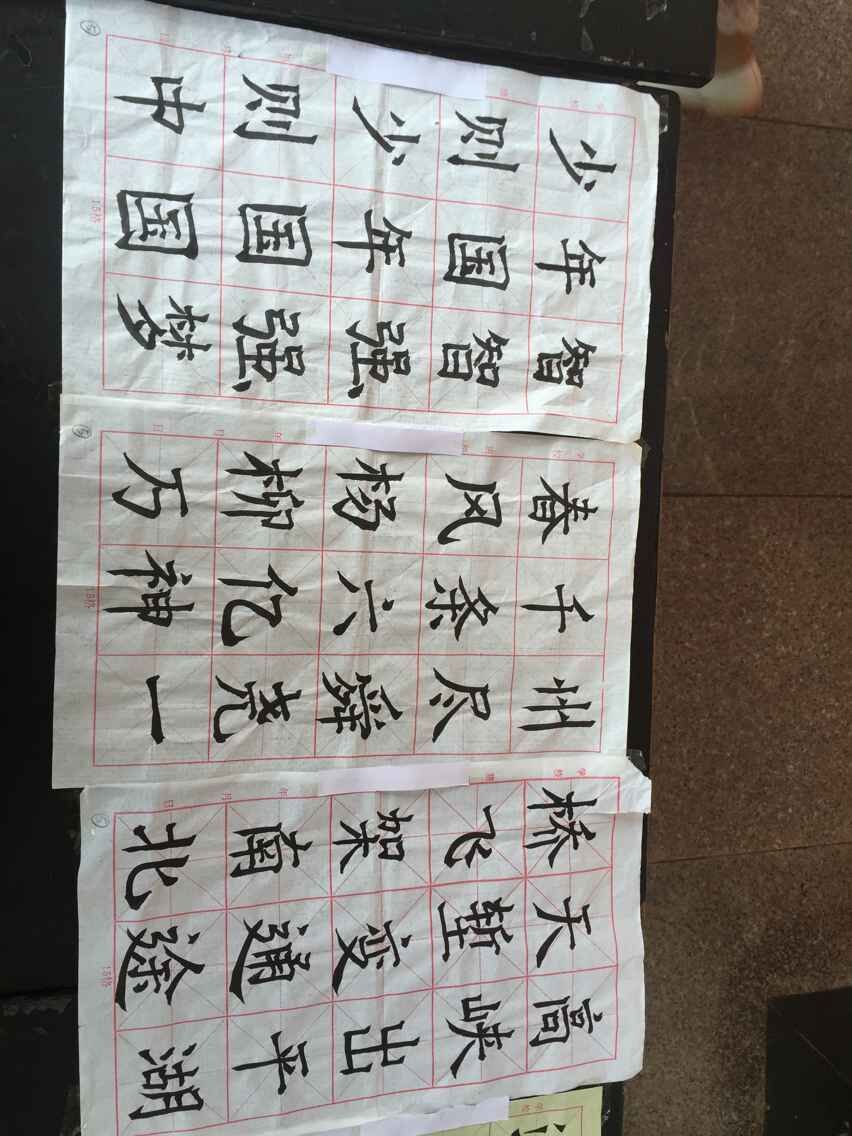 少年智
则国智
少年强
则国强
中国梦
春风杨柳万
千条六亿神
州尽舜尧一
桥飞架南北
天堑变通途
高峡出平湖